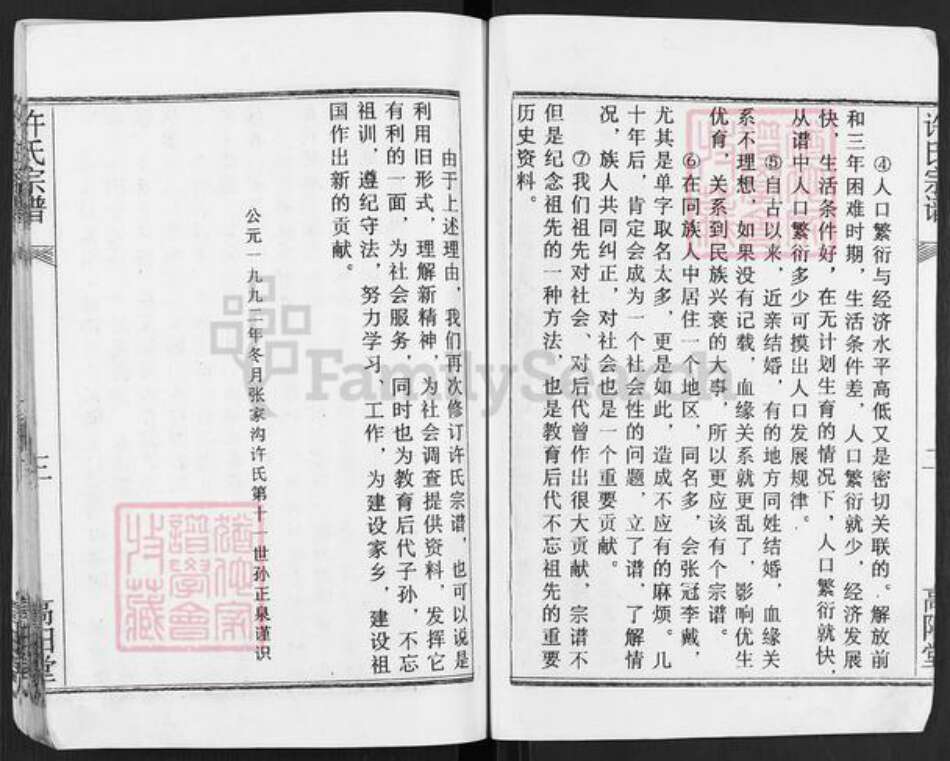 许氏宗谱
二
高阳堂
④人口繁衍与经济水平高低又是密切关联的。解放前
和三年困难时期，生活条件差，人口繁衍就少，经济发展
快，生活条件好，在无计划生育的情况下，人口繁衍就快，
从谱中人口繁衍多少可摸出人口发展规律。
⑤自古以来，近亲结婚，有的地方同姓结婚，血缘关
系不理想，如果没有记载，血缘关系就更乱了，影响优生
优育，关系到民族兴衰的大事，所以更应该有个宗谱。
⑥在同族人中居住一个地区，同名多，会张冠李戴，
尤其是单字取名太多，更是如此，造成不应有的麻烦。几
十年后，肯定会成为一个社会性的问题，立了谱，了解情
况，族人共同纠正，对社会也是一个重要贡献。
⑦我们祖先对社会、对后代曾作出很大贡献，宗谱不
但是纪念祖先的一种方法，也是教育后代不忘祖先的重要
历史资料。
由于上述理由，我们再次修订许氏宗谱，也可以说是
利用旧形式，理解新精神，为社会调查提供资料，发挥它
有利的一面，为社会服务，同时也为教育后代子孙，不忘
祖训，遵纪守法，努力学习、工作，为建设家乡，建设祖
国作出新的贡献。
公元一九九二年冬月张家沟许氏第十一世孙正泉谨识
许氏宗谱
三
高阳堂
FamilySearch